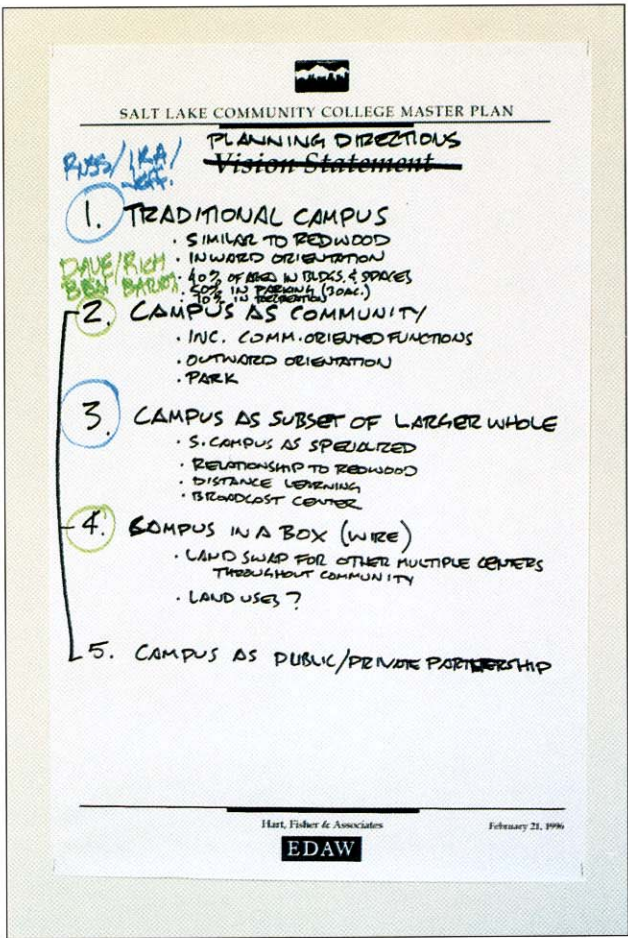 SALT LAKE COMMUNITY COLLEGE MASTER PLAN
PLANNING DIRECTIONS
Vision Statement
RUSS/IRA/
1. TRADITIONAL CAMPUS
· SIMILAR TO REDWOOD
· INWARD ORIENTATION
DAVE/RICH
· 40% OF AREA IN BLDGS. & SPACES
BEN
50% IN PARKING (30AC.)
10% IN RECREATION
2. CAMPUS AS COMMUNITY
· INC. COMM. ORIENTED FUNCTIONS
· OUTWARD ORIENTATION
· PARK
3. CAMPUS AS SUBSET OF LARGER WHOLE
· S. CAMPUS AS SPECIALIZED
· RELATIONSHIP TO REDWOOD
· DISTANCE LEARNING
· BROADCAST CENTER
4. CAMPUS IN A BOX (WIRE)
· LAND SWAP FOR OTHER MULTIPLE CENTERS
THROUGHOUT COMMUNITY
· LAND USES?
5. CAMPUS AS PUBLIC/PRIVATE PARTNERSHIP
Hart, Fisher & Associates
February 21, 1996
EDAW